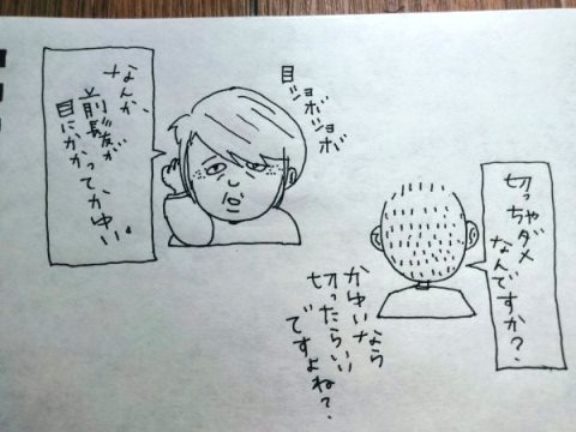 なんか、
前髪が
目にかかってかゆい。
目ショボショボ
切っちゃダメ
なんですか？
かゆいなら
切ったらいい
ですよね？